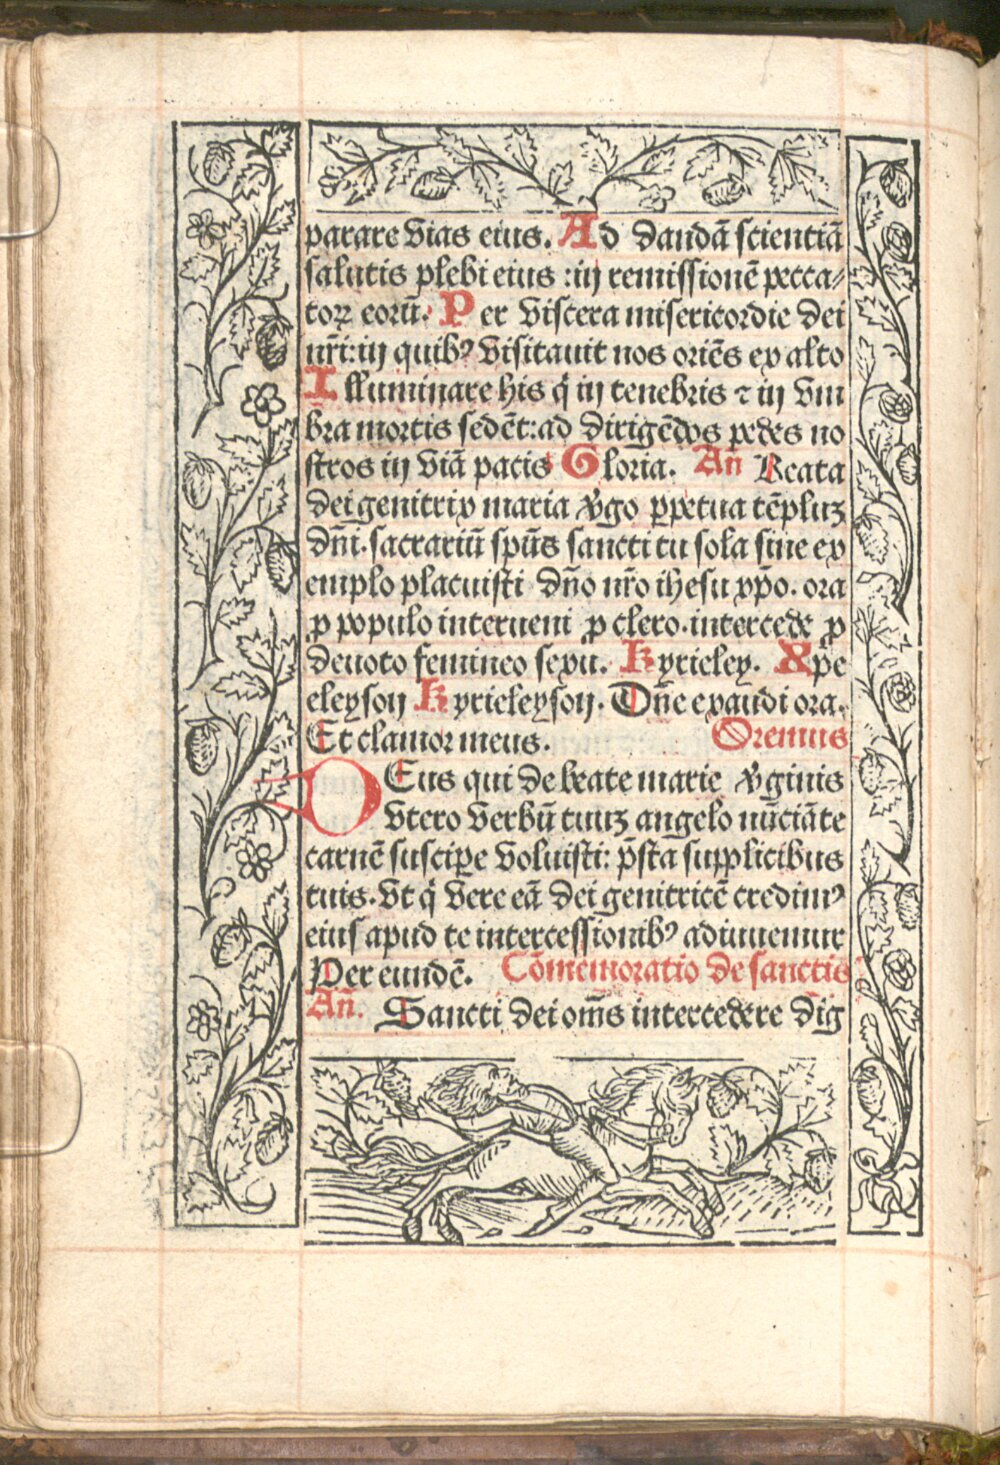 parare vias eius. Ad dandã scientiã
salutis plebi eius : in remissionẽ pecca⸗
toꝝ eorũ. Per viscera misericordie dei
nr̃i: in quibꝰ visitauit nos oriẽs ex alto
Illuminare his q̇ in tenebris ⁊ in vm
bra mortis sedẽt: ad dirigẽdos pedes no
stros in viã pacis Gloria. Añ Beata
dei genitrix maria v̾go ꝑpetua tẽpluʒ
dñi. sacrariũ spũs sancti tu sola sine ex
emplo placuisti dño nr̃o ihesu xp̃o. ora
ꝓ populo interueni ꝓ clero. intercede ꝓ
deuoto femineo sexu. Kyrieley. Xp̃e
eleyson Kyrieleyson. Dñe exaudi ora.
Et clamor meus. Oremus
DEus qui de beate marie v̾ginis
vtero verbũ tuuʒ angelo nũciãte
carnẽ suscipe voluisti: p̃sta supplicibus
tuis. vt q̇ vere eã dei genitricẽ credimꝰ
eius apud te intercessionibꝰ adiuuemur
Per eundẽ. Cõmemoratio de sanctis
Añ. Sancti dei om̃s intercedere dig